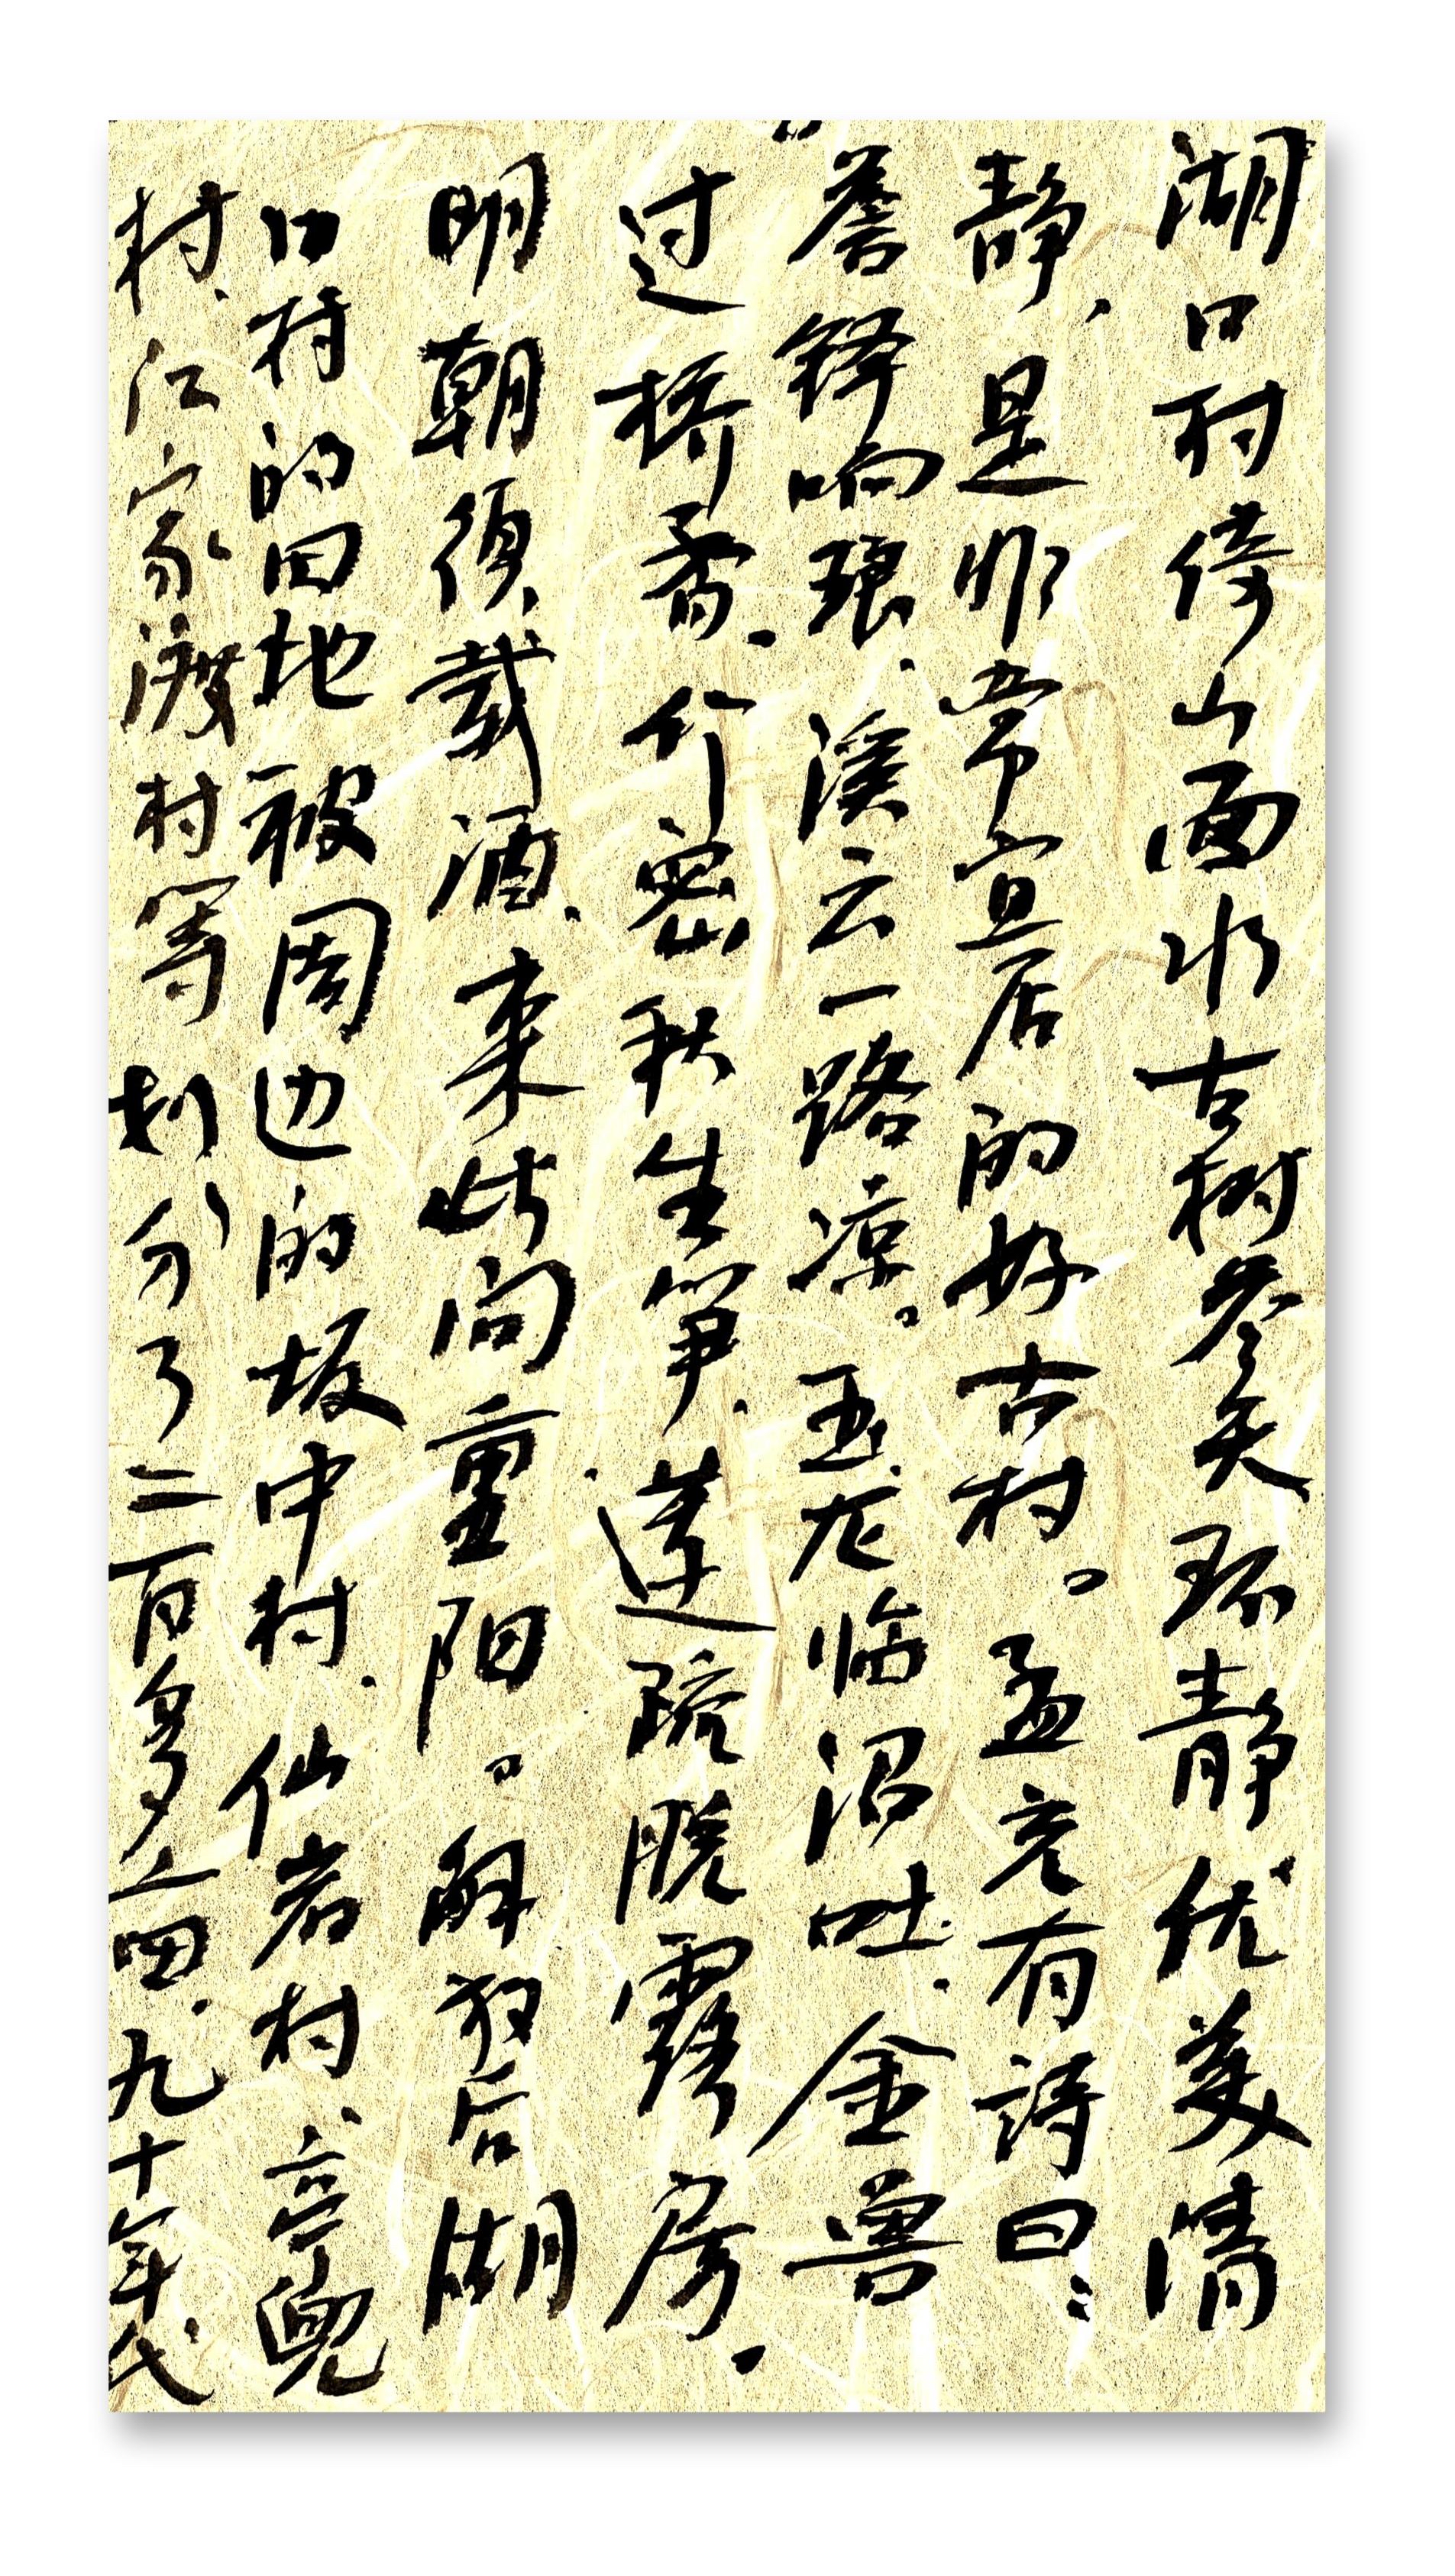 湖口村倚山面水古树参天环静优美清
静、是非常宜居的好古村。孟充有詩曰:
詹铎响琅、溪云一路凉。玉龙临沼吐、金兽
过桥香、竹密秋生笋、莲疏脱露房、
明朝须载酒、来此问重阳。解放后湖
口村的田地被周边的坂中村、仙岩村、亭兜
村、江家渡村等划分了二百多亩、九十年代